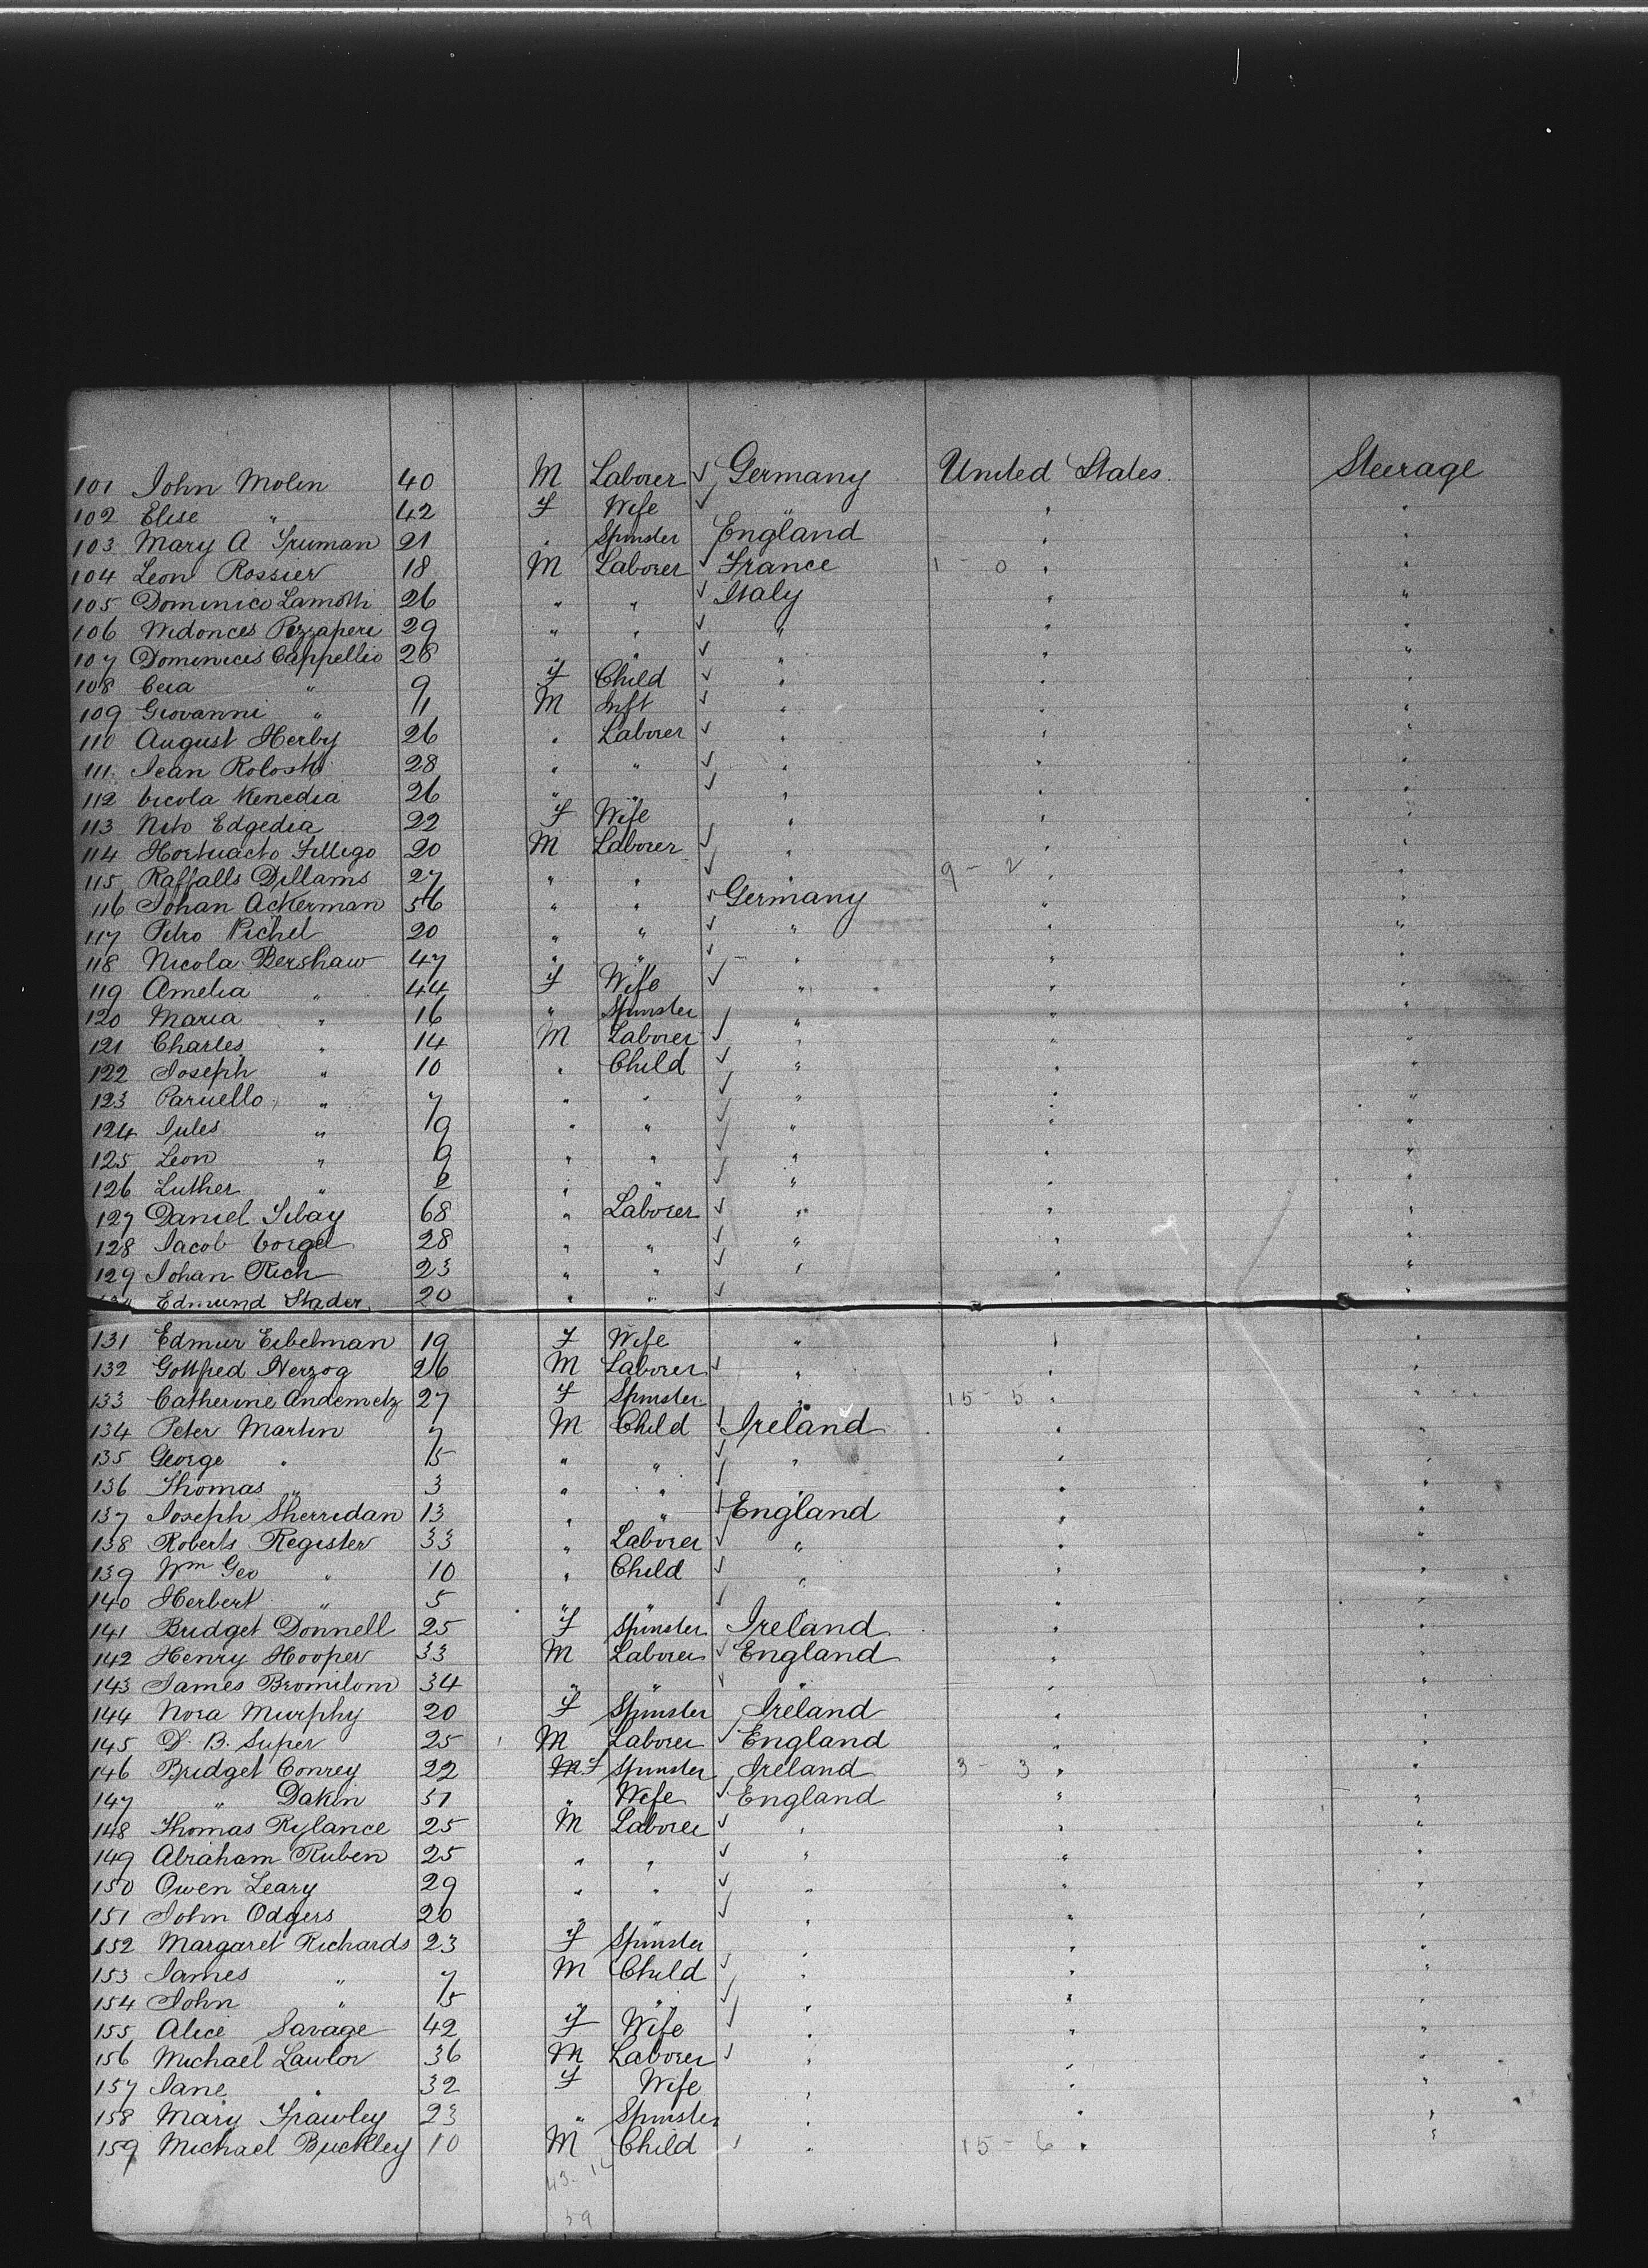 101 John Molin 40 M Laborer ✓ Germany United States. Steerage
102 Elise " 42 F Wife ✓ " " "
103 Mary A Truman 21 " Spinster England " "
104 Leon Rossier 18 M Laborer ✓ France 1 - 0 " "
105 Dominico Lamotti 26 " " ✓ Italy " "
106 Widonces Pezzapere 29 " " ✓ " " "
107 Dominices Cappellio 28 " " ✓ " " "
108 Ceia " 9 F Child ✓ " " "
109 Giovanni " 11 M Inft ✓ " " "
110 August Herby 26 " Laborer ✓ " " "
111 Jean Roloski 28 " " ✓ " " "
112 Nenedia 26 " " ✓ " " "
113 Nito Edgedia 22 F Wife " " "
114 Hortuacto Fillego 20 M Laborer ✓ " " "
115 Raffalls Dellams 27 " " ✓ " 9 - 2 " "
116 Johan Ackerman 56 " " ✓ Germany " "
117 Petro Pichel 20 " " ✓ " " "
118 Nicola Bershaw 47 " " ✓ " " "
119 Amelia " 44 F Wife ✓ " " "
120 Maria " 16 " Spinster " " "
121 Charles " 14 M Laborer ✓ " " "
122 Joseph " 10 " Child ✓ " " "
123 Paruello " 7 " " ✓ " " "
124 Jules " " " ✓ " " "
125 Leon " 9 " " ✓ " " "
126 Luther " 2 " " ✓ " " "
127 Daniel Silay 68 " Laborer ✓ " " "
128 Jacob Vorgel 28 " " ✓ " " "
129 Johan Rich 23 " " ✓ " " "
Edmund Stader 20 " " ✓
131 Edmur Eibelman 19 F Wife " " "
132 Gottfred Herzog 26 M Laborer ✓ " " "
133 Catherine Andemetz 27 F Spinster " 15 - 5 " "
134 Peter Martin 7 M Child ✓ Ireland " "
135 George " 5 " " ✓ " " "
136 Thomas " 3 " " ✓ " " "
137 Joseph Sherridan 13 " " ✓ England " "
138 Roberts Register 33 " Laborer ✓ " " "
139 Wm Geo " 10 " Child ✓ " " "
140 Herbert " 5 " " ✓ " " "
141 Bridget Donnell 25 F Spinster Ireland " "
142 Henry Hooper 33 M Laborer ✓ England " "
143 James Bromilom 34 " " ✓ " " "
144 Nora Murphy 20 F Spinster Ireland " "
145 D. B. Super 25 M Laborer ✓ England " "
146 Bridget Conrey 22 F Spinster Ireland 3 - 3 " "
147 " Dakin 51 " Wife ✓ England " "
148 Thomas Rylance 25 M Laborer ✓ " " "
149 Abraham Ruben 25 " " ✓ " " "
150 Owen Leary 29 " " ✓ " " "
151 John Odgers 20 " " ✓ " " "
152 Margaret Richards 23 F Spinster " " "
153 James " 7 M Child ✓ " " "
154 John " 5 " " ✓ " " "
155 Alice Savage 42 F Wife ✓ " " "
156 Michael Lawlor 36 M Laborer ✓ " " "
157 Jane " 32 F Wife " " "
158 Mary Frawley 23 " Spinster " " "
159 Michael Buckley 10 M Child ✓ " 15 - 6 " "
59